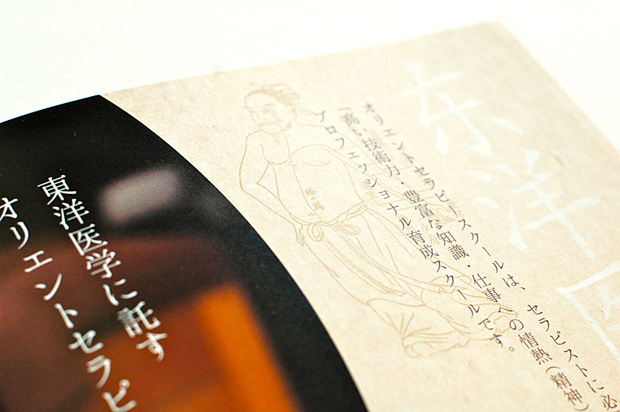 东洋医
オリエントセラピースクールは、セラピストに必
「高い技術力・豊富な知識・仕事への情熱(精神)
プロフェッショナル育成スクールです。
東洋医学に託す
オリエントセラピ